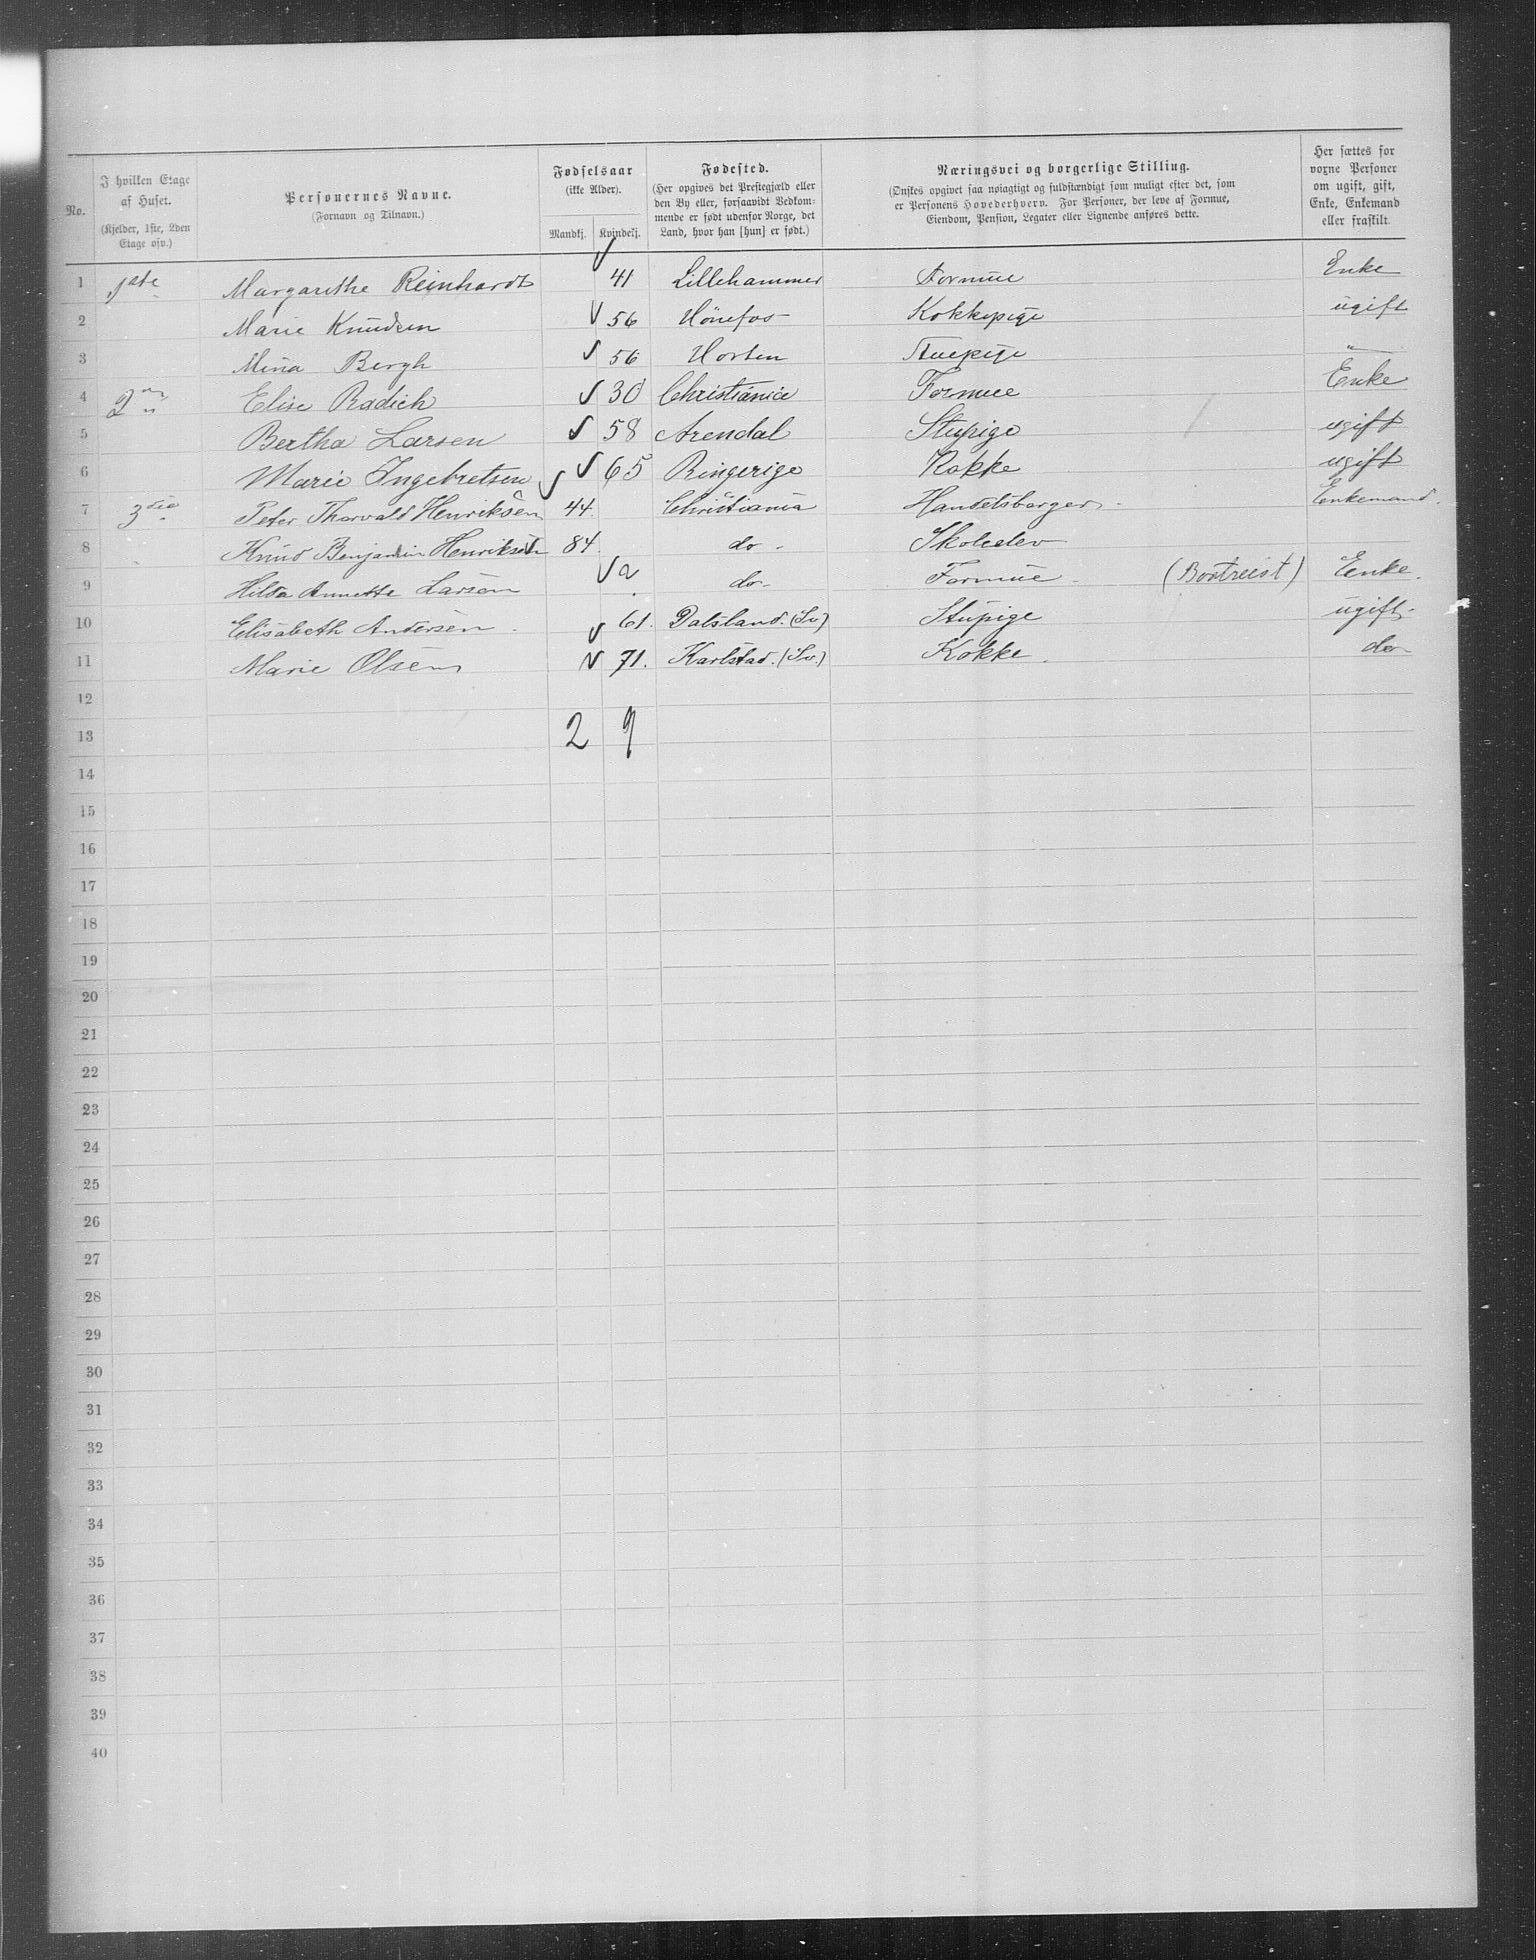 No.
I hvilken Etage af Huset.
(Kjelder, 1ste, 2den Etage osv.)
Personernes Navne.
(Fornavn og Tilnavn.)
Fødselsaar
(ikke Alder).
Mandkj. Kvindekj.
Fødested.
(Her opgives det Prestegjæld eller den By eller, forsaavidt Vedkommende er født udenfor Norge, det Land, hvor han [hun] er født.)
Næringsvei og borgerlige Stilling.
(Ønskes opgivet saa nøiagtigt og fuldstændigt som muligt efter det, som er Personens Hovederhverv. For Personer, der leve af Formue, Eiendom, Pension, Legater eller Lignende anføres dette.
Her sættes for voxne Personer om ugift, gift, Enke, Enkemand eller fraskilt.
1 1ste Margarethe Reinhardt 41 Lillehammer Formue Enke
2 Marie Knudsen 56 Hønefos Kokkepige ugift
3 Mina Bergh 56 Horten Stuepige "
4 2den Elise Radich 30 Christiania Formue Enke
5 Bertha Larsen 58 Arendal Stupige ugift
6 Marie Ingebretsen 65 Ringerige Kokke ugift
7 3die Peter Thorvald Henriksen 44. Christiania Handelsborger. Enkemand.
8 Knud Benjamin Henriksen 84. do. Skoleelev
9 Hilda Annette Larsen do. Formue. (Bortreist) Enke.
10 Elisabeth Andersen. 61. Dalsland. (Sv) Stupige ugift.
11 Marie Olsen 71. Karlstad. (Sv.) Kokke. do
12
13 2 9
14
15
16
17
18
19
20
21
22
23
24
25
26
27
28
29
30
31
32
33
34
35
36
37
38
39
40